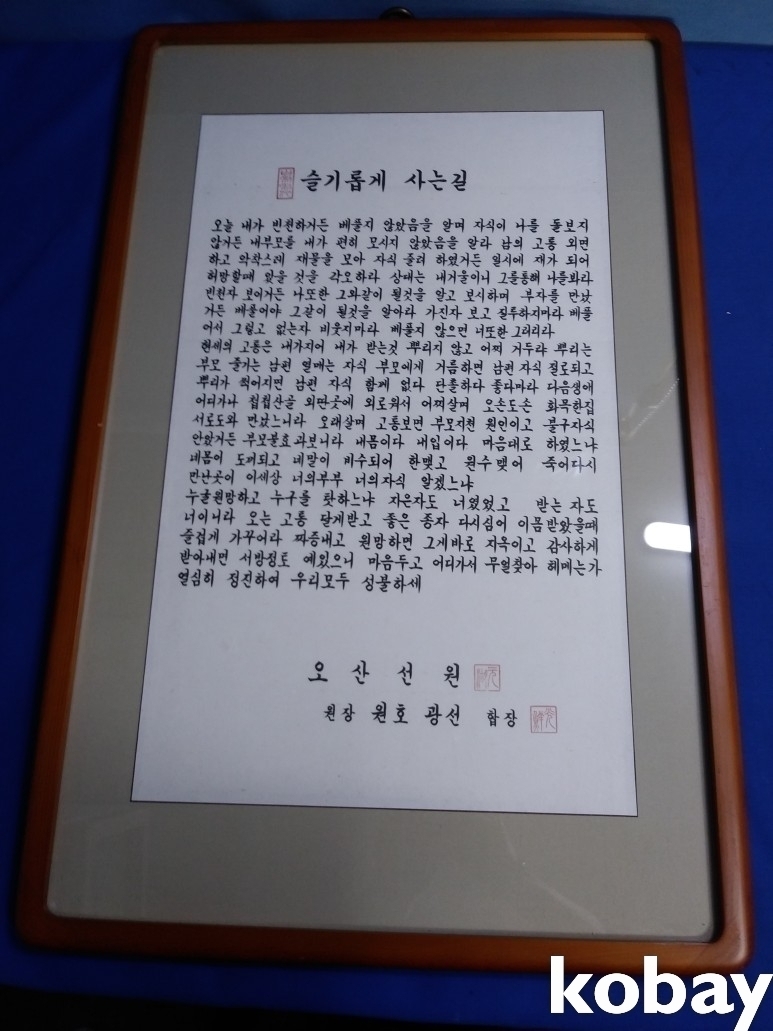 슬기롭게 사는길
오늘 내가 빈천하거든 베풀지 않았음을 알며 자식이 나를 돌보지
않거든 내부모를 내가 편히 모시지 않았음을 알라 남의 고통 외면
하고 악착스레 재물을 모아 자식 줄려 하였거든 일시에 재가 되어
허망할때 있을 것을 각오하라 상대는 내거울이니 그를통해 나를봐라
빈천자 보이거든 나또한 그와같이 될것을 알고 보시하며 부자를 만났
거든 베풀어야 그같이 될것을 알아라 가진자 보고 질투하지마라 베풀
어서 그렇고 없는자 비웃지마라 베풀지 않으면 너또한 그러리라
현세의 고통은 내가지어 내가 받는것 뿌리지 않고 어찌 거두랴 뿌리는
부모 줄기는 남편 열매는 자식 부모에게 거름하면 남편 자식 절로되고
뿌리가 썩어지면 남편 자식 함께 없다 단촐하다 좋다마라 다음생애
어디가나 첩첩산골 외딴곳에 외로워서 어찌살며 오손도손 화목한집
서로도와 만났느니라 오래살며 고통보면 부모지천 원인이고 불구자식
안았거든 부모불효과보니라 내몸이다 내입이다 마음대로 하였느냐
네몸이 도끼되고 네말이 비수되어 한맺고 원수맺어 죽어다시
만난곳이 이세상 너의부부 너의자식 알겠느냐
누굴원망하고 누구를 탓하느냐 지은자도 너였었고 받는자도
너이니라 오는 고통 달게받고 좋은 종자 다시심어 이몸받았을때
즐겁게 가꾸어라 짜증내고 원망하면 그게바로 지옥이고 감사하게
받아내면 서방정토 예있으니 마음두고 어디가서 무얼찾아 헤메는가
열심히 정진하여 우리모두 성불하세
오산선원
원장 원호 광선 합장
kobay